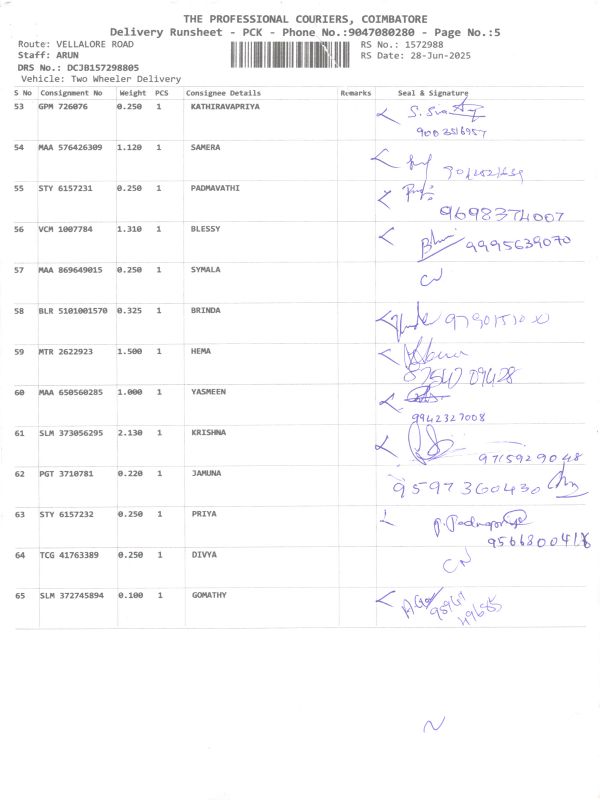 THE PROFESSIONAL COURIERS, COIMBATORE
Delivery Runsheet - PCK - Phone No.:9047080280 - Page No.:5
Route: VELLALORE ROAD RS No.: 1572988
Staff: ARUN RS Date: 28-Jun-2025
DRS No.: DCJB157298805
Vehicle: Two Wheeler Delivery
S No Consignment No Weight PCS Consignee Details Remarks Seal & Signature
53 GPM 726076 0.250 1 KATHIRAVAPRIYA
9003516957
54 MAA 576426309 1.120 1 SAMERA
55 STY 6157231 0.250 1 PADMAVATHI
9698374007
56 VCM 1007784 1.310 1 BLESSY
9995639070
57 MAA 869649015 0.250 1 SYMALA
CN
58 BLR 5101001570 0.325 1 BRINDA
59 MTR 2622923 1.500 1 HEMA
60 MAA 650560285 1.000 1 YASMEEN
9942327008
61 SLM 373056295 2.130 1 KRISHNA
9715929048
62 PGT 3710781 0.220 1 JAMUNA
9597360430
63 STY 6157232 0.250 1 PRIYA
64 TCG 41763389 0.250 1 DIVYA
CN
65 SLM 372745894 0.100 1 GOMATHY